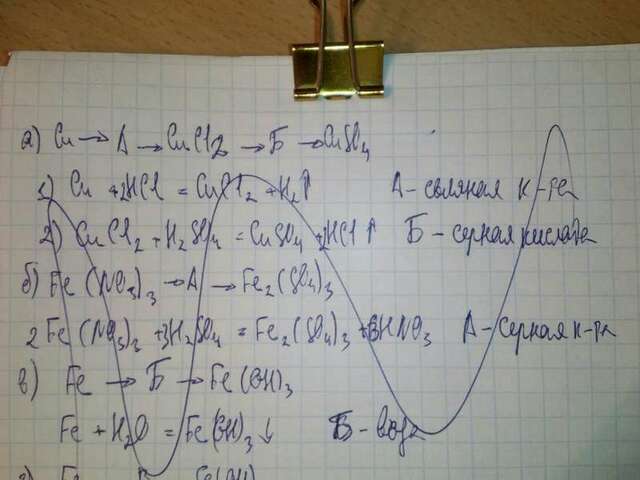 а) Cu → А → CuCl2 → Б → CuSO4
1) Cu + 2HCl = CuCl2 + H2↑ А - соляная к-та
2) CuCl2 + H2SO4 = CuSO4 + 2HCl↑ Б - серная кислота
б) Fe(NO3)3 → А → Fe2(SO4)3
2Fe(NO3)3 + 3H2SO4 = Fe2(SO4)3 + 6HNO3 А - серная к-та
в) Fe → Б → Fe(OH)3
Fe + H2O = Fe(OH)3↓ Б - вода
г) Fe